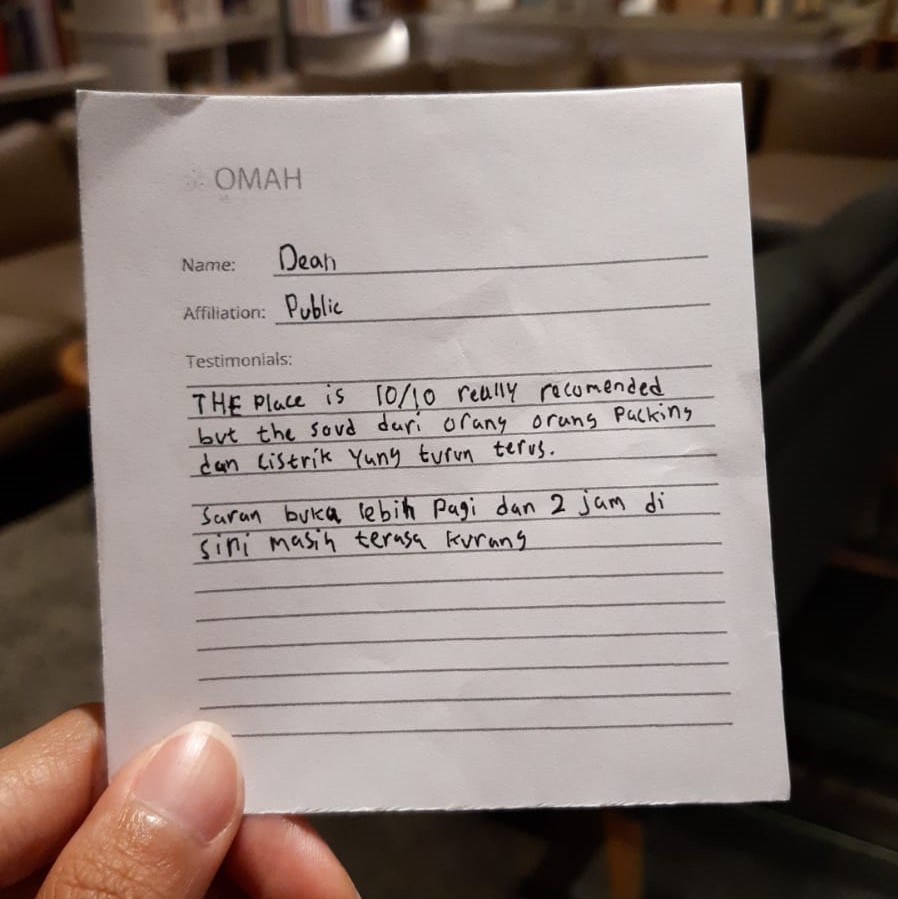 OMAH
Name: Dean
Affiliation: Public
Testimonials:
THE Place is 10/10 really recomended
but the soud dari orang orang Packing
dan Listrik Yang turun terus.
Saran buka lebih Pagi dan 2 jam di
sini masih terasa kurang